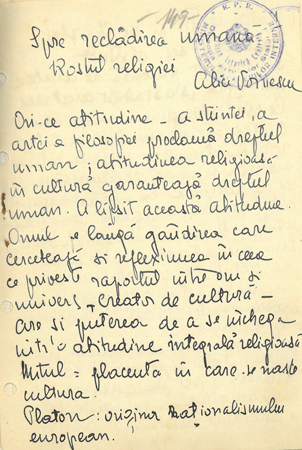 -149-
R.P.R.
Spre reclădirea umană
Rostul religiei
Alice Voinescu
Ori-ce atitudine - a științei, a
artei a filosofiei proclamă dreptul
uman; atitudinea religioasă
în cultură garantează dreptul
uman. A lipsit această atitudine.
Omul e lângă gândirea care
cercetează și reflexiunea în ceea
ce privește raportul între om și
univers, creator de cultură -
are și puterea de a se închega
într'o atitudine integrală religioasă
Mitul = placenta în care se naște
cultura.
Platon: origina raționalismului
european.